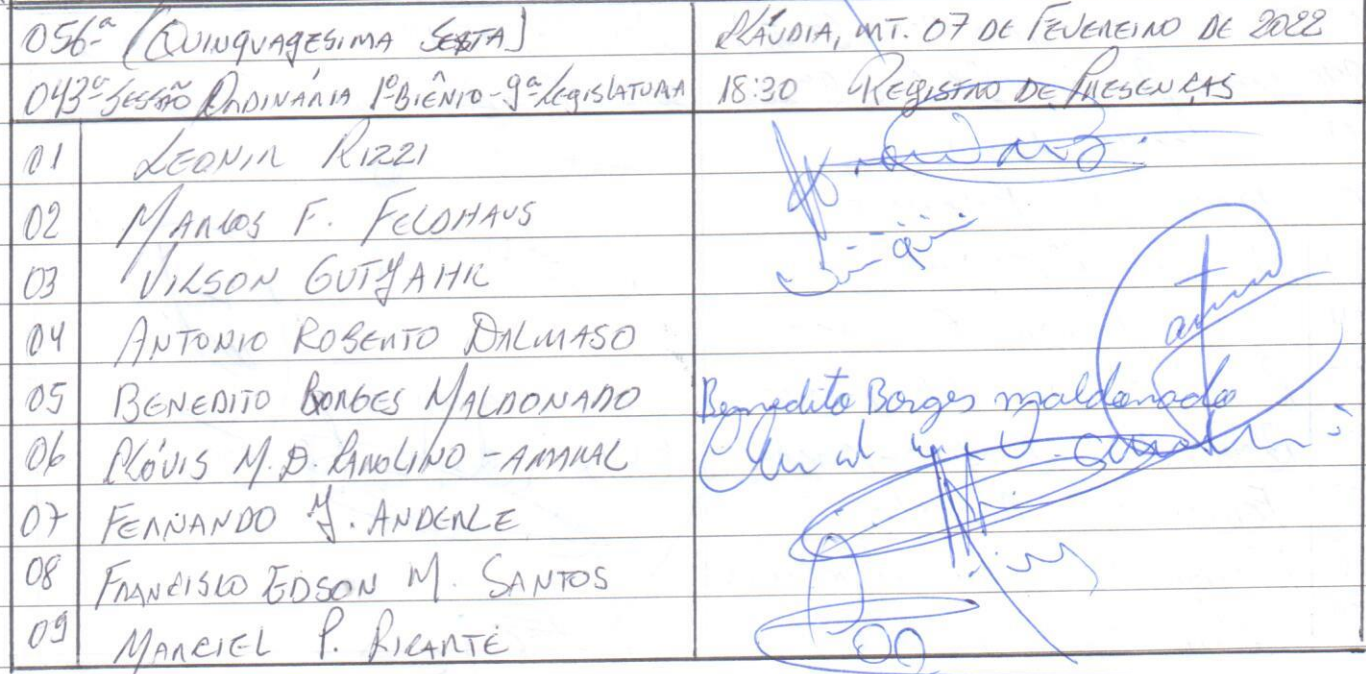 056ª (QUINQUAGESIMA SEXTA)
CLÁUDIA, MT. 07 DE FEVEREIRO DE 2022
043ª SESSÃO ORDINÁRIA 1º BIÊNIO - 9ª LEGISLATURA
18:30 REGISTRO DE PRESENÇAS
01 LEONIR RIZZI
02 MARCOS F. FELDHAUS
03 VILSON GUTJAHR
04 ANTONIO ROBERTO DALMASO
05 BENEDITO BORGES MALDONADO Benedito Borges maldonado
06 CLÓVIS M. D. CAROLINO - AMARAL
07 FERNANDO J. ANDERLE
08 FRANCISCO EDSON M. SANTOS
09 MARCIEL P. RICARTE